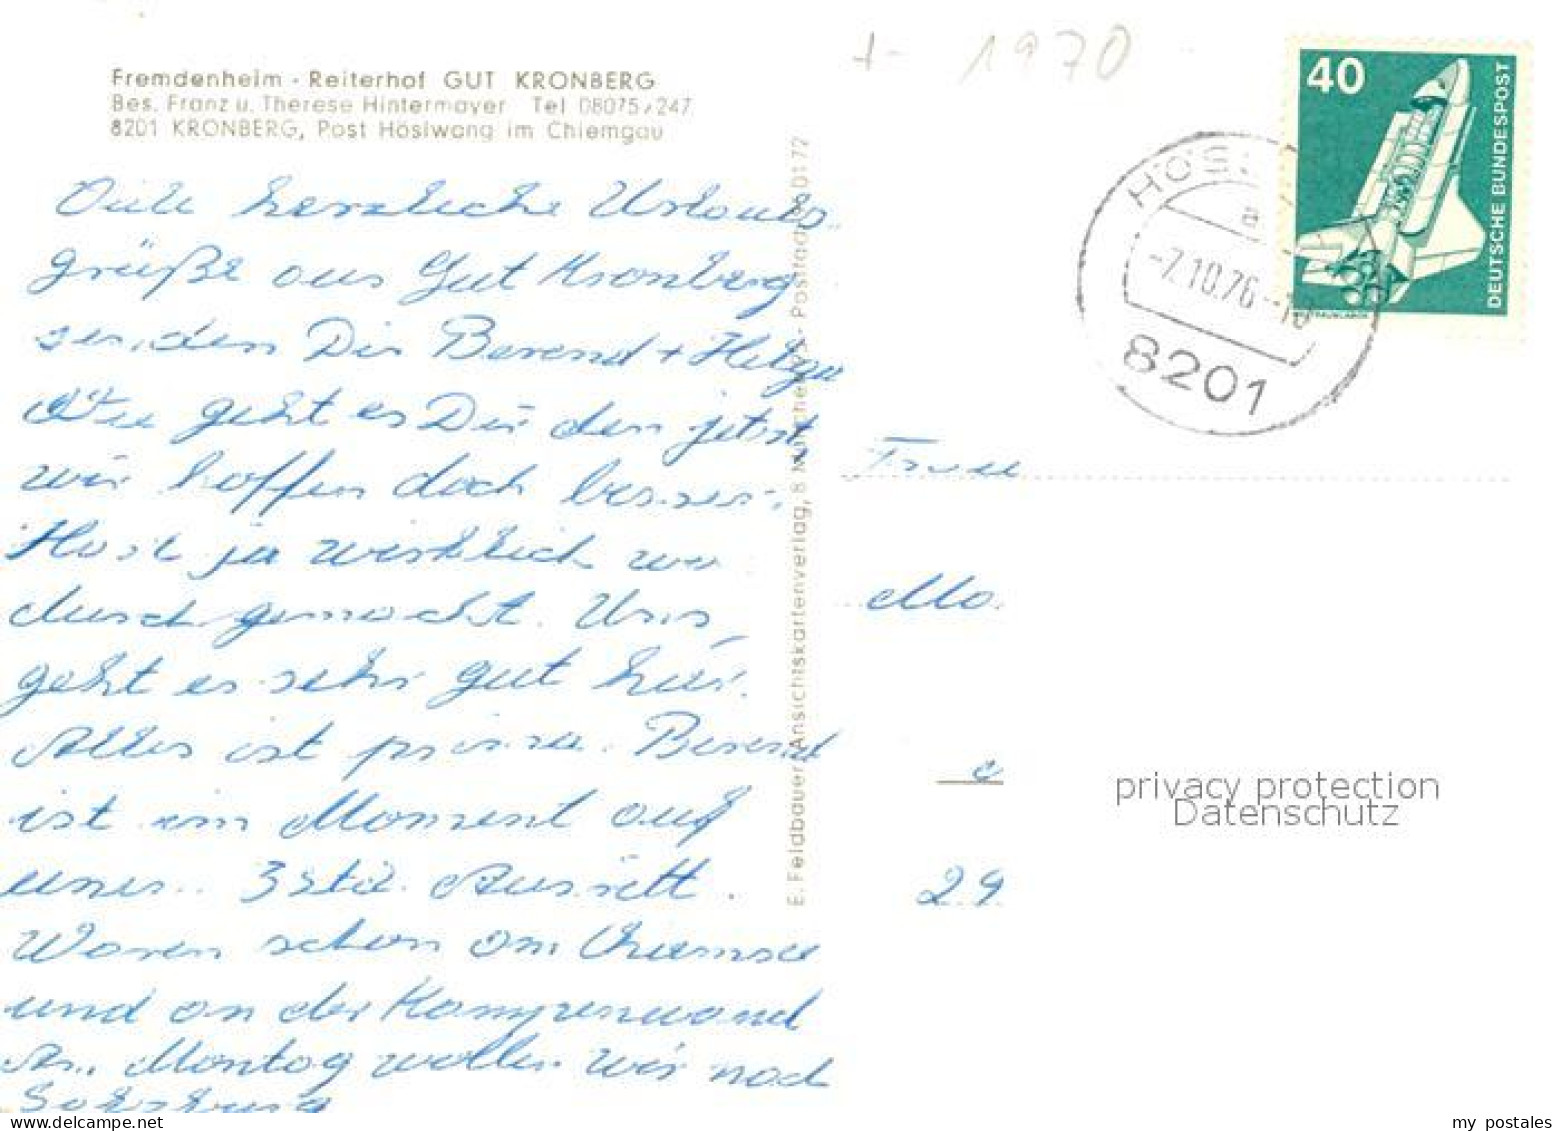 +- 1970
Fremdenheim - Reiterhof GUT KRONBERG
Bes. Franz u. Therese Hintermayer Tel 08075/247
8201 KRONBERG, Post Höslwang im Chiemgau
Viele herzliche Urlaubs-
grüße aus Gut Kronberg
senden Dir Berend + Helga
Wie geht es Dir den jetzt,
wir hoffen doch besser.
Hast ja wirklich was
durch gemacht. Uns
geht es sehr gut hier.
Alles ist prima. Berend
ist im Moment auf
einen 3 Std. Ausritt.
Waren schon am Chiemsee
und an der Kampenwand
Am Montag wollen wir nach
Salzburg
E. Feldbauer, Ansichtskartenverlag, 8 München
40
DEUTSCHE BUNDESPOST
-7.10.76
8201
Frau
Mo
29
privacy protection
Datenschutz
my postales